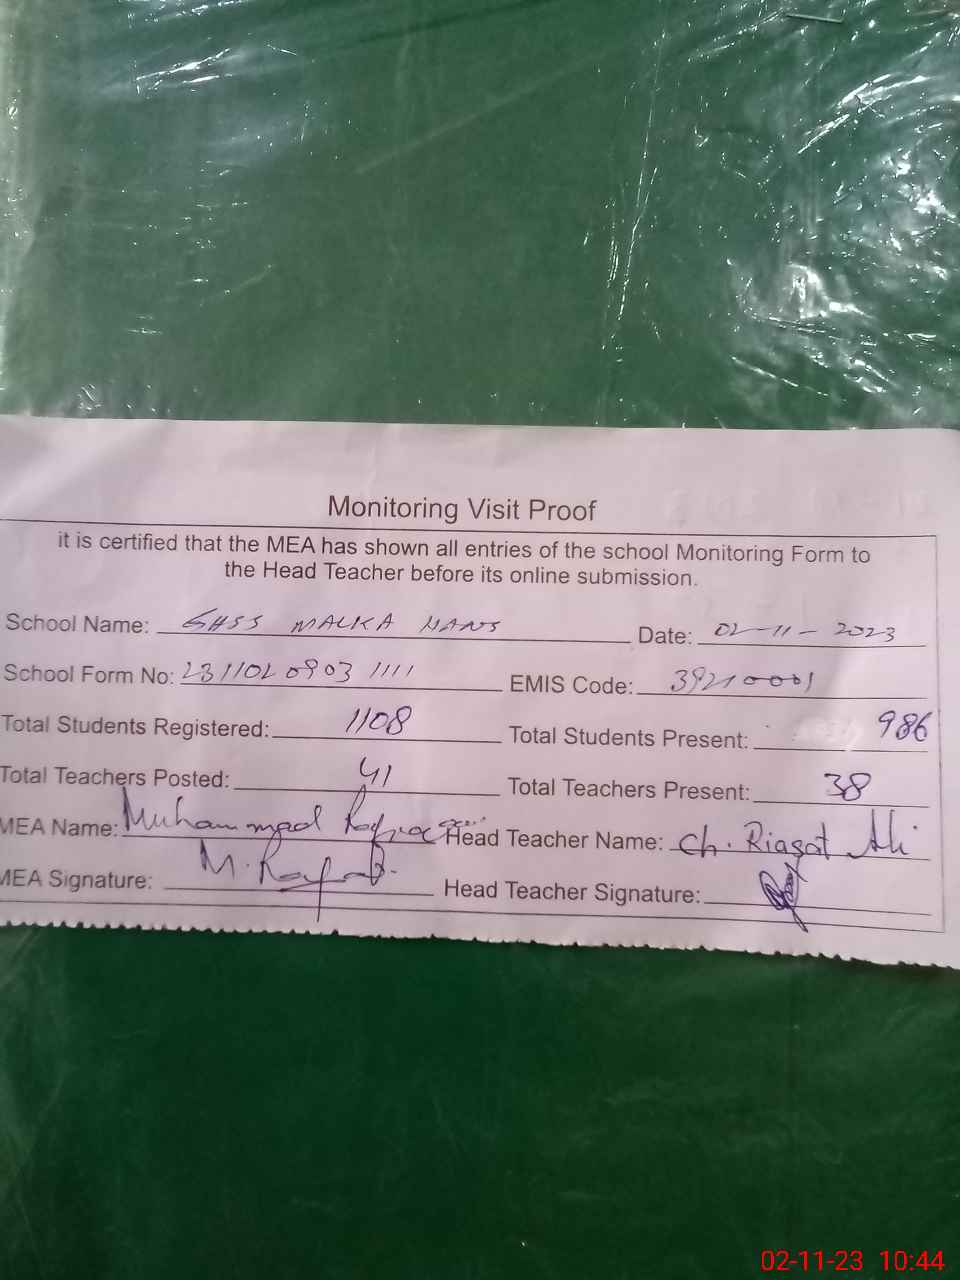 Monitoring Visit Proof
it is certified that the MEA has shown all entries of the school Monitoring Form to
the Head Teacher before its online submission.
School Name: GHSS MALKA HANS Date: 02-11-2023
School Form No: 2311020903 1111 EMIS Code: 39210001
Total Students Registered: 1108 Total Students Present: 986
Total Teachers Posted: 41 Total Teachers Present: 38
MEA Name: Muhammad Head Teacher Name: Ch. Riasat Ali
MEA Signature: M. Head Teacher Signature:
02-11-23 10:44